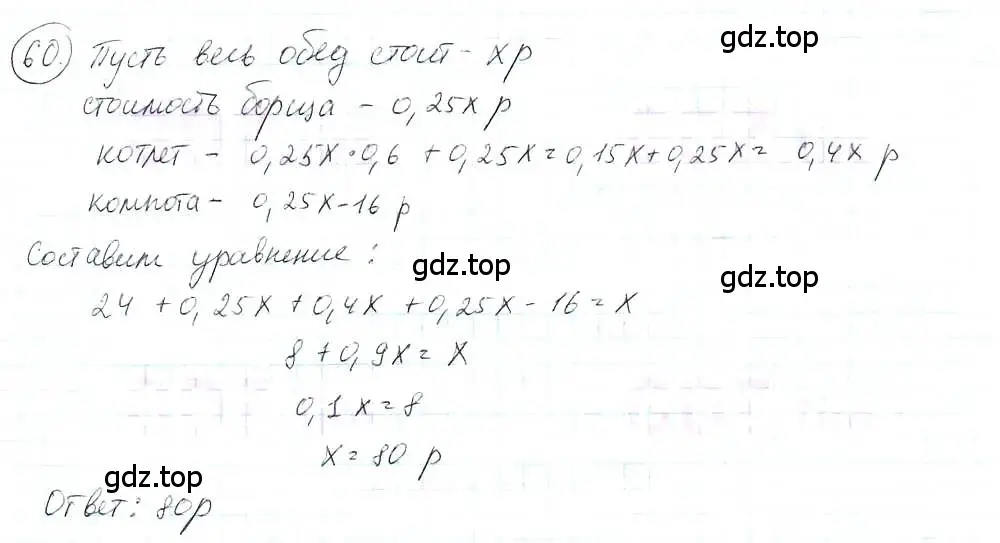 60. Пусть весь обед стоит - x р
gdz.top
стоимость борща - 0,25x р
котлет - 0,25x·0,6 + 0,25x = 0,15x + 0,25x = 0,4x р
компота - 0,25x - 16 р
Составим уравнение:
gdz.top
gdz.top
24 + 0,25x + 0,4x + 0,25x - 16 = x
8 + 0,9x = x
0,1x = 8
x = 80 р
gdz.top
Ответ: 80р
gdz.top